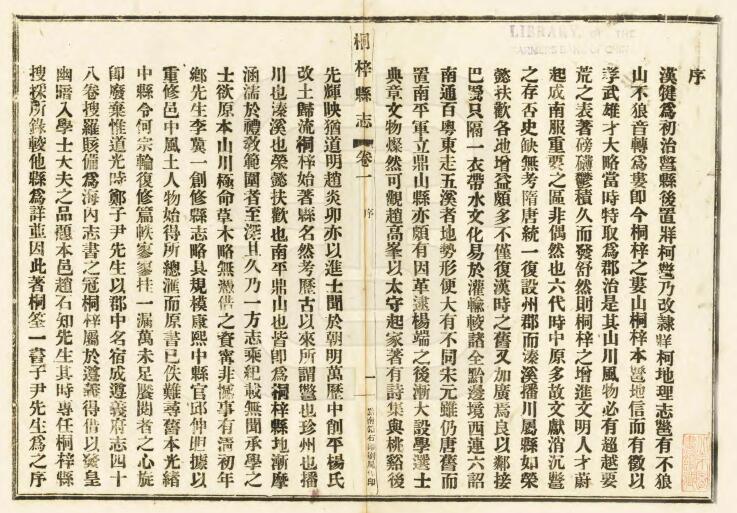 序
漢犍爲初治鼈縣後置牂柯鼈乃改隸牂柯地理志鼈有不狼
山不狼音轉爲婁卽今桐梓之婁山桐梓本鼈地信而有徵以
孝武雄才大略當時特取爲郡治是其山川風物必有超越要
荒之表著磅礴鬱積久而發舒然則桐梓之增進文明人才蔚
起成南服重要之區非偶然也六代時中原多故文獻消沉鼈
之存否史缺無考隋唐統一復設州郡而溱溪播川屬縣如榮
懿扶歡各地增益頗多不僅復漢時之舊又加廣焉良以鄰接
巴蜀只隔一衣帶水文化易於灌輸較諸全黔邊境西連六詔
南通百粵東走五溪者地勢形便大有不同宋元雖仍唐舊而
置南平軍立鼎山縣亦頗有因革逮楊端之後漸大設學選士
典章文物燦然可觀趙高峯以太守起家著有詩集與桃谿後
桐梓縣志
卷一
序
一
先輝映猶道明趙炎卯亦以進士聞於朝明萬歷中創平楊氏
改土歸流桐梓始著縣名然考歷古以來所謂鼈也珍州也播
川也溱溪也榮懿扶歡也南平鼎山也皆卽爲桐梓縣地漸摩
涵濡於禮教範圍者至深且久乃一方志乘紀載無聞承學之
士欲原本山川極命草木略無憑借之資寧非憾事有清初年
鄉先生李冀一創修縣志略具規模康熙中縣官邱仲胆據以
重修邑中風土人物始得所總滙而原書已佚難尋舊本光緒
中縣令何宗輪復修篇軼寥寥挂一漏萬未足饜閱者之心旋
卽廢棄惟道光時鄭子尹先生以郡中名宿成遵義府志四十
八卷搜羅賅備爲海內志書之冠桐梓屬於遵義得借以發皇
幽賾入學士大夫之品題本邑趙石知先生其時專任桐梓縣
搜採所錄較他縣爲詳並因此著桐筌一書子尹先生爲之序
LIBRARY OF THE
FARMERS BANK OF CHINA